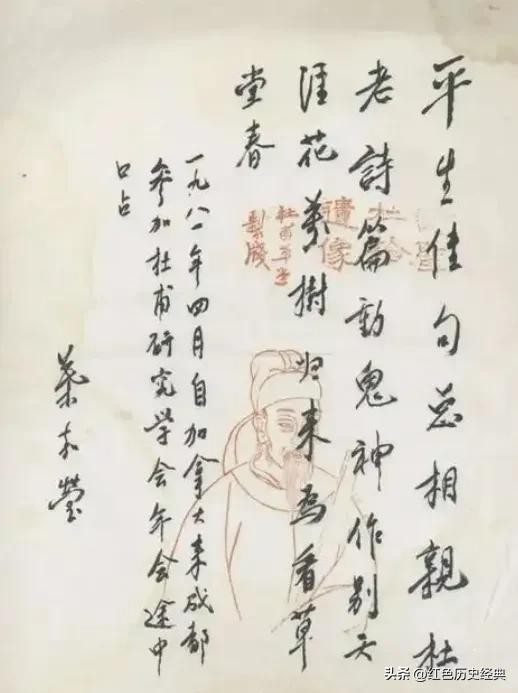 平生佳句总相親杜
老詩篇動鬼神作别天
涯花萬樹归来为看草
堂春
一九八一年四月自加拿大来成都
参加杜甫研究学会年会途中
口占
葉嘉瑩
遺像
杜甫草堂
製牋
头条 @红色历史经典